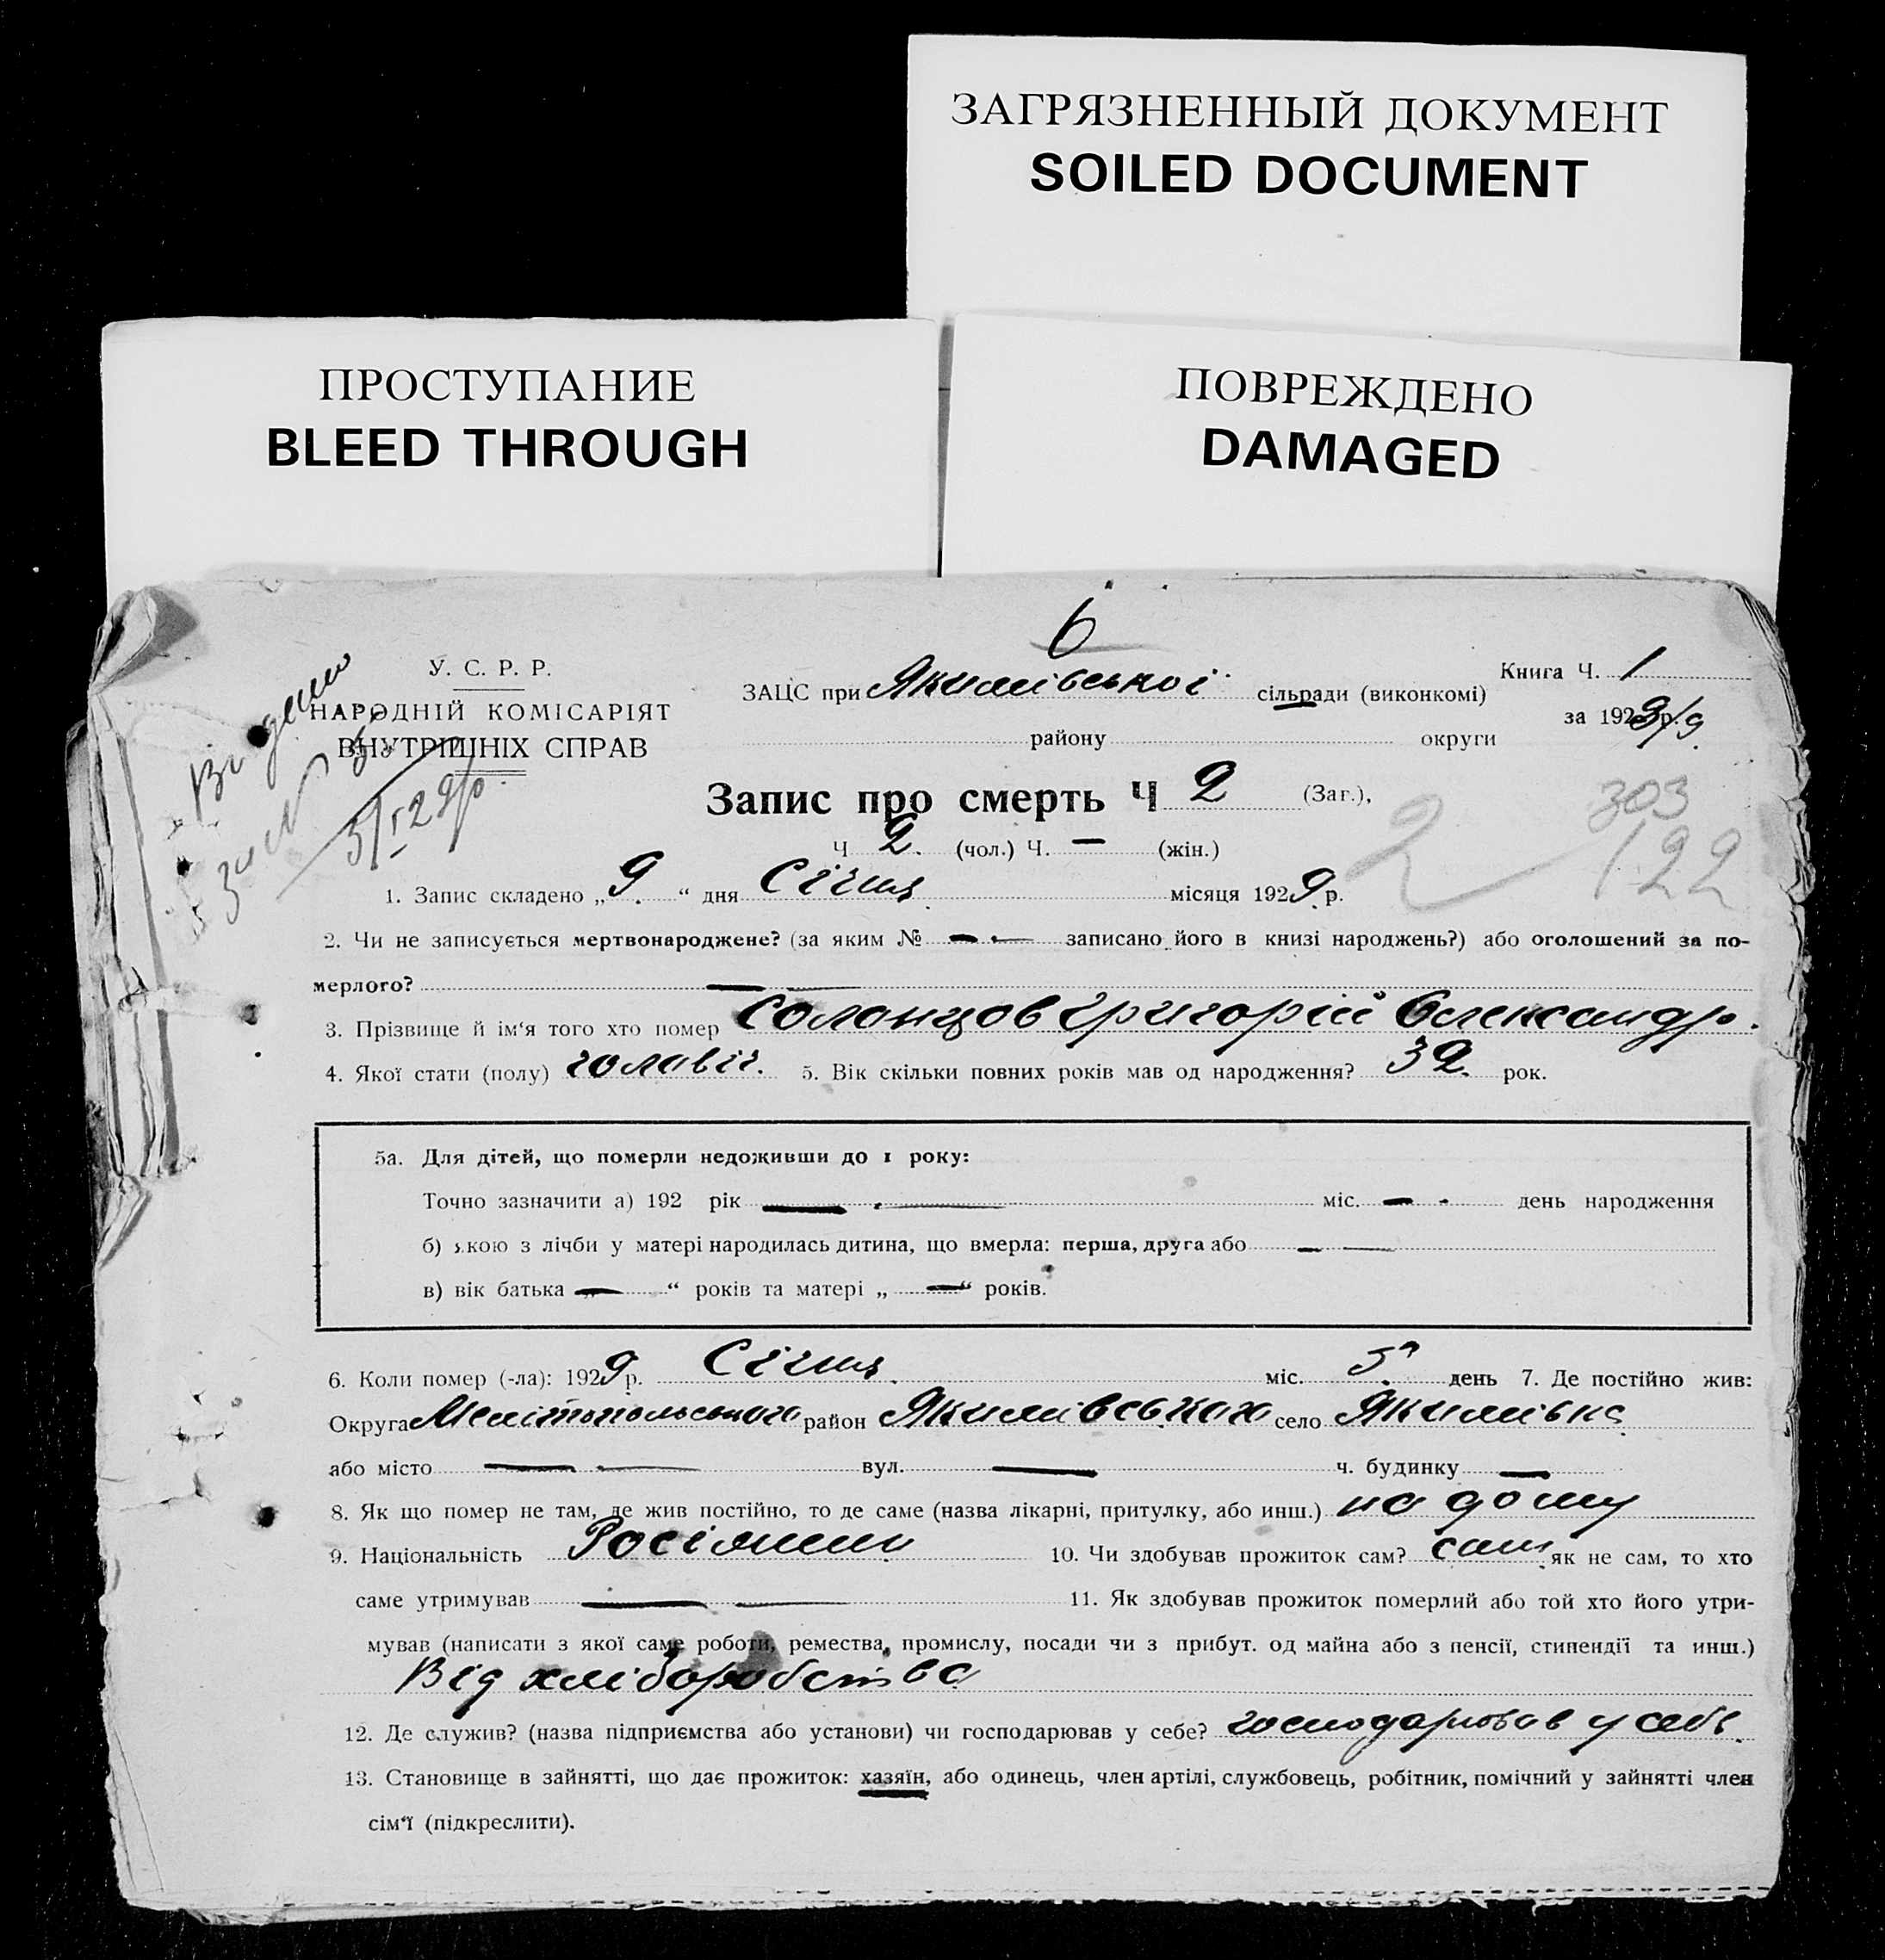 ЗАГРЯЗНЕННЫЙ ДОКУМЕНТ
SOILED DOCUMENT
ПРОСТУПАНИЕ
BLEED THROUGH
ПОВРЕЖДЕНО
DAMAGED
6
У. С. Р. Р.
НАРОДНІЙ КОМІСАРІЯТ
ВНУТРІШНІХ СПРАВ
ЗАЦС при Якимівської сільради (виконкомі)
району округи
Книга Ч. 1
за 1928/9 р.
Запис про смерть Ч 2 (Заг.),
Ч 2. (чол.) Ч. — (жін.)
2
303
122
1. Запис складено „9.“ дня Січня місяця 1929 р.
2. Чи не записується мертвонароджене? (за яким № — — записано його в книзі народжень?) або оголошений за по-
мерлого? — —
3. Прізвище й ім‘я того хто помер Солонцов Григорій Олександр.
4. Якої стати (полу) чоловіч. 5. Вік скільки повних років мав од народження? 32. рок.
5а. Для дітей, що померли недоживши до 1 року:
Точно зазначити а) 192 рік — — міс. — - день народження
б) якою з лічби у матері народилась дитина, що вмерла: перша, друга або — —
в) вік батька „—“ років та матері „—“ років.
6. Коли помер (-ла): 1929 р. Січня. міс. 5 день 7. Де постійно жив:
Округа Мелітопольського район Якимівського село Якимівка
або місто — — вул. — ч. будинку —
8. Як що помер не там, де жив постійно, то де саме (назва лікарні, притулку, або инш.) на дому
9. Національність Росіянин 10. Чи здобував прожиток сам? сам як не сам, то хто
саме утримував — — 11. Як здобував прожиток померлий або той хто його утри-
мував (написати з якої саме роботи, ремества, промислу, посади чи з прибут. од майна або з пенсії, стипендії та инш.)
Від хліборобства
12. Де служив? (назва підприємства або установи) чи господарював у себе? господарював у себе.
13. Становище в зайнятті, що дає прожиток: хазяїн, або одинець, член артілі, службовець, робітник, помічний у зайнятті член
сім‘ї (підкреслити).